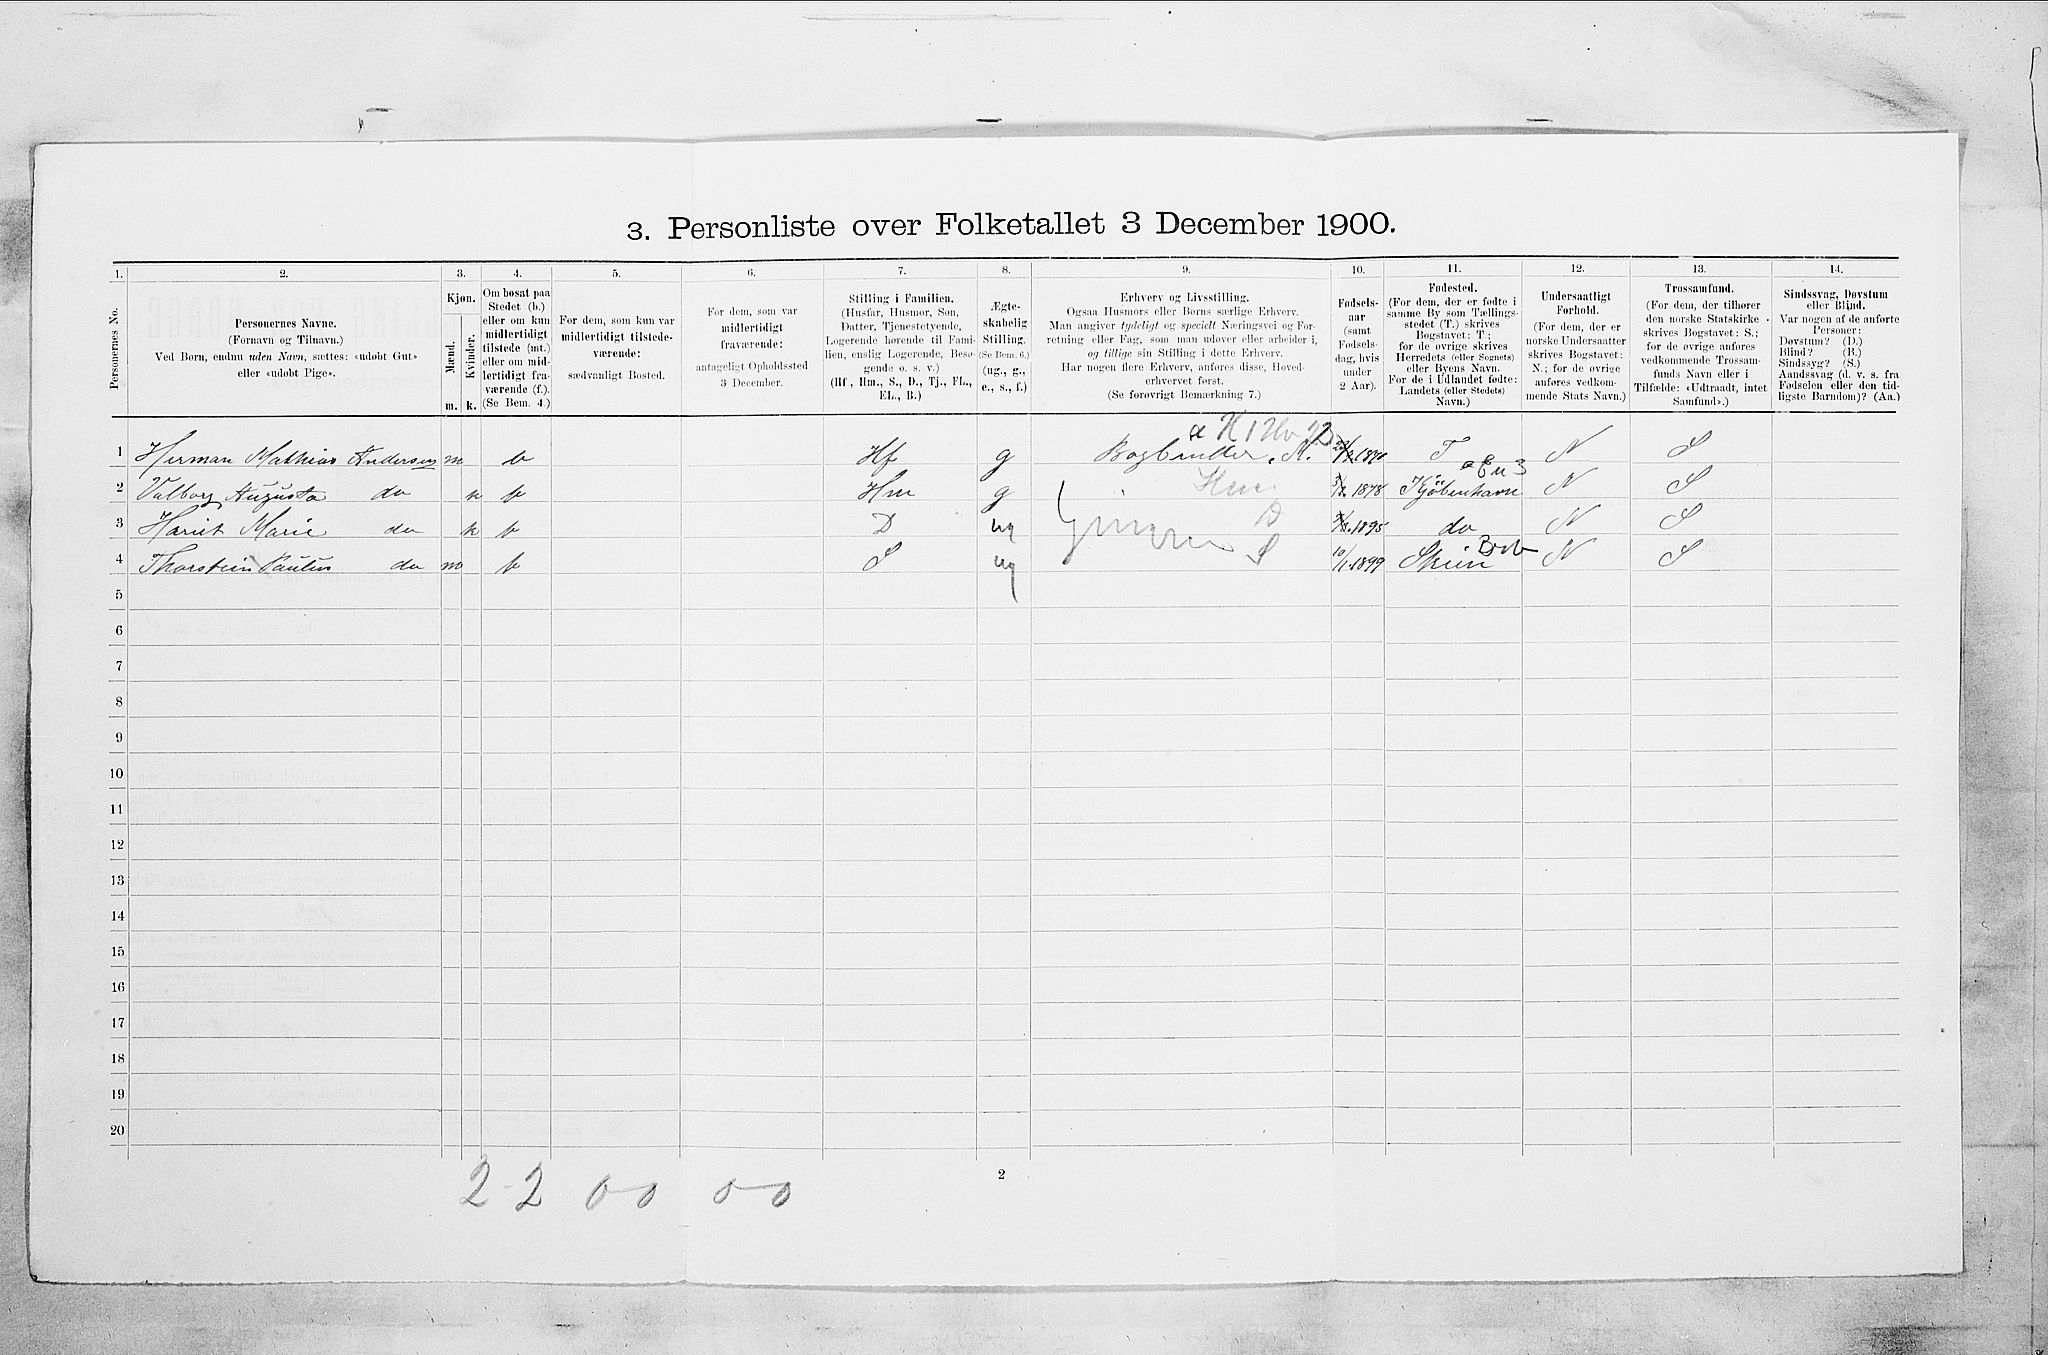 3. Personliste over Folketallet 3 December 1900.
1. 2. 3. 4. 5. 6. 7. 8. 9. 10. 11. 12. 13. 14.
Personernes No.
Personernes Navne.
(Fornavn og Tilnavn.)
Ved Børn, endnu uden Navn, sættes: «udøbt Gut»
eller «udøbt Pige».
Kjøn.
Mænd. Kvinder.
m. k.
Om bosat paa
Stedet (b.)
eller om kun
midlertidigt
tilstede (mt.)
eller om mid-
lertidigt fra-
værende (f.).
(Se Bem. 4.)
For dem, som kun var
midlertidigt tilstede-
værende:
sædvanligt Bosted.
For dem, som var
midlertidigt
fraværende:
antageligt Opholdssted
3 December.
Stilling i Familien.
(Husfar, Husmor, Søn,
Datter, Tjenestetyende,
Logerende hørende til Fami-
lien, enslig Logerende, Besø-
gende o. s. v.)
(Hf., Hm., S., D., Tj., FL.,
EL., B.)
Ægte-
skabelig
Stilling.
(Se Bem. 6.)
(ug., g.,
e., s., f.)
Erhverv og Livsstilling.
Ogsaa Husmors eller Børns særlige Erhverv.
Man angiver tydeligt og specielt Næringsvei og For-
retning eller Fag, som man udøver eller arbeider i,
og tillige sin Stilling i dette Erhverv.
Har nogen flere Erhverv, anføres disse, Hoved-
erhvervet først.
(Se forøvrigt Bemærkning 7.)
Fødsels-
aar
(samt
Fødsels-
dag, hvis
under
2 Aar).
Fødested.
(For dem, der er fødte i
samme By som Tællings-
stedet (T.) skrives
Bogstavet: T;
for de øvrige skrives
Herredets (eller Sognets)
eller Byens Navn.
For de i Udlandet fødte:
Landets (eller Stedets)
Navn.)
Undersaatligt
Forhold.
(For dem, der er
norske Undersaatter
skrives Bogstavet:
N.; for de øvrige
anføres vedkom-
mende Stats Navn.)
Trossamfund.
(For dem, der tilhører
den norske Statskirke
skrives Bogstavet: S.;
for de øvrige anføres
vedkommende Trossam-
funds Navn eller i
Tilfælde: «Udtraadt, intet
Samfund».)
Sindssvag, Døvstum
eller Blind.
Var nogen af de anførte
Personer:
Døvstum? (D.)
Blind? (B.)
Sindssyg? (S.)
Aandssvag (d. v. s. fra
Fødselen eller den tid-
ligste Barndom)? (Aa.)
1 Herman Mathias Andersen m b Hf g T N S
2 Valborg Augusta do k b Hm g 1878 Kjöbenhavn N S
3 Marie do k b D ug 1895 do N S
4 Thorstein Paulus do m b S ug 10/1.1899 Skien N S
5
6
7
8
9
10
11
12
13
14
15
16
17
18
19
20
2-2 0-0 0-0
2